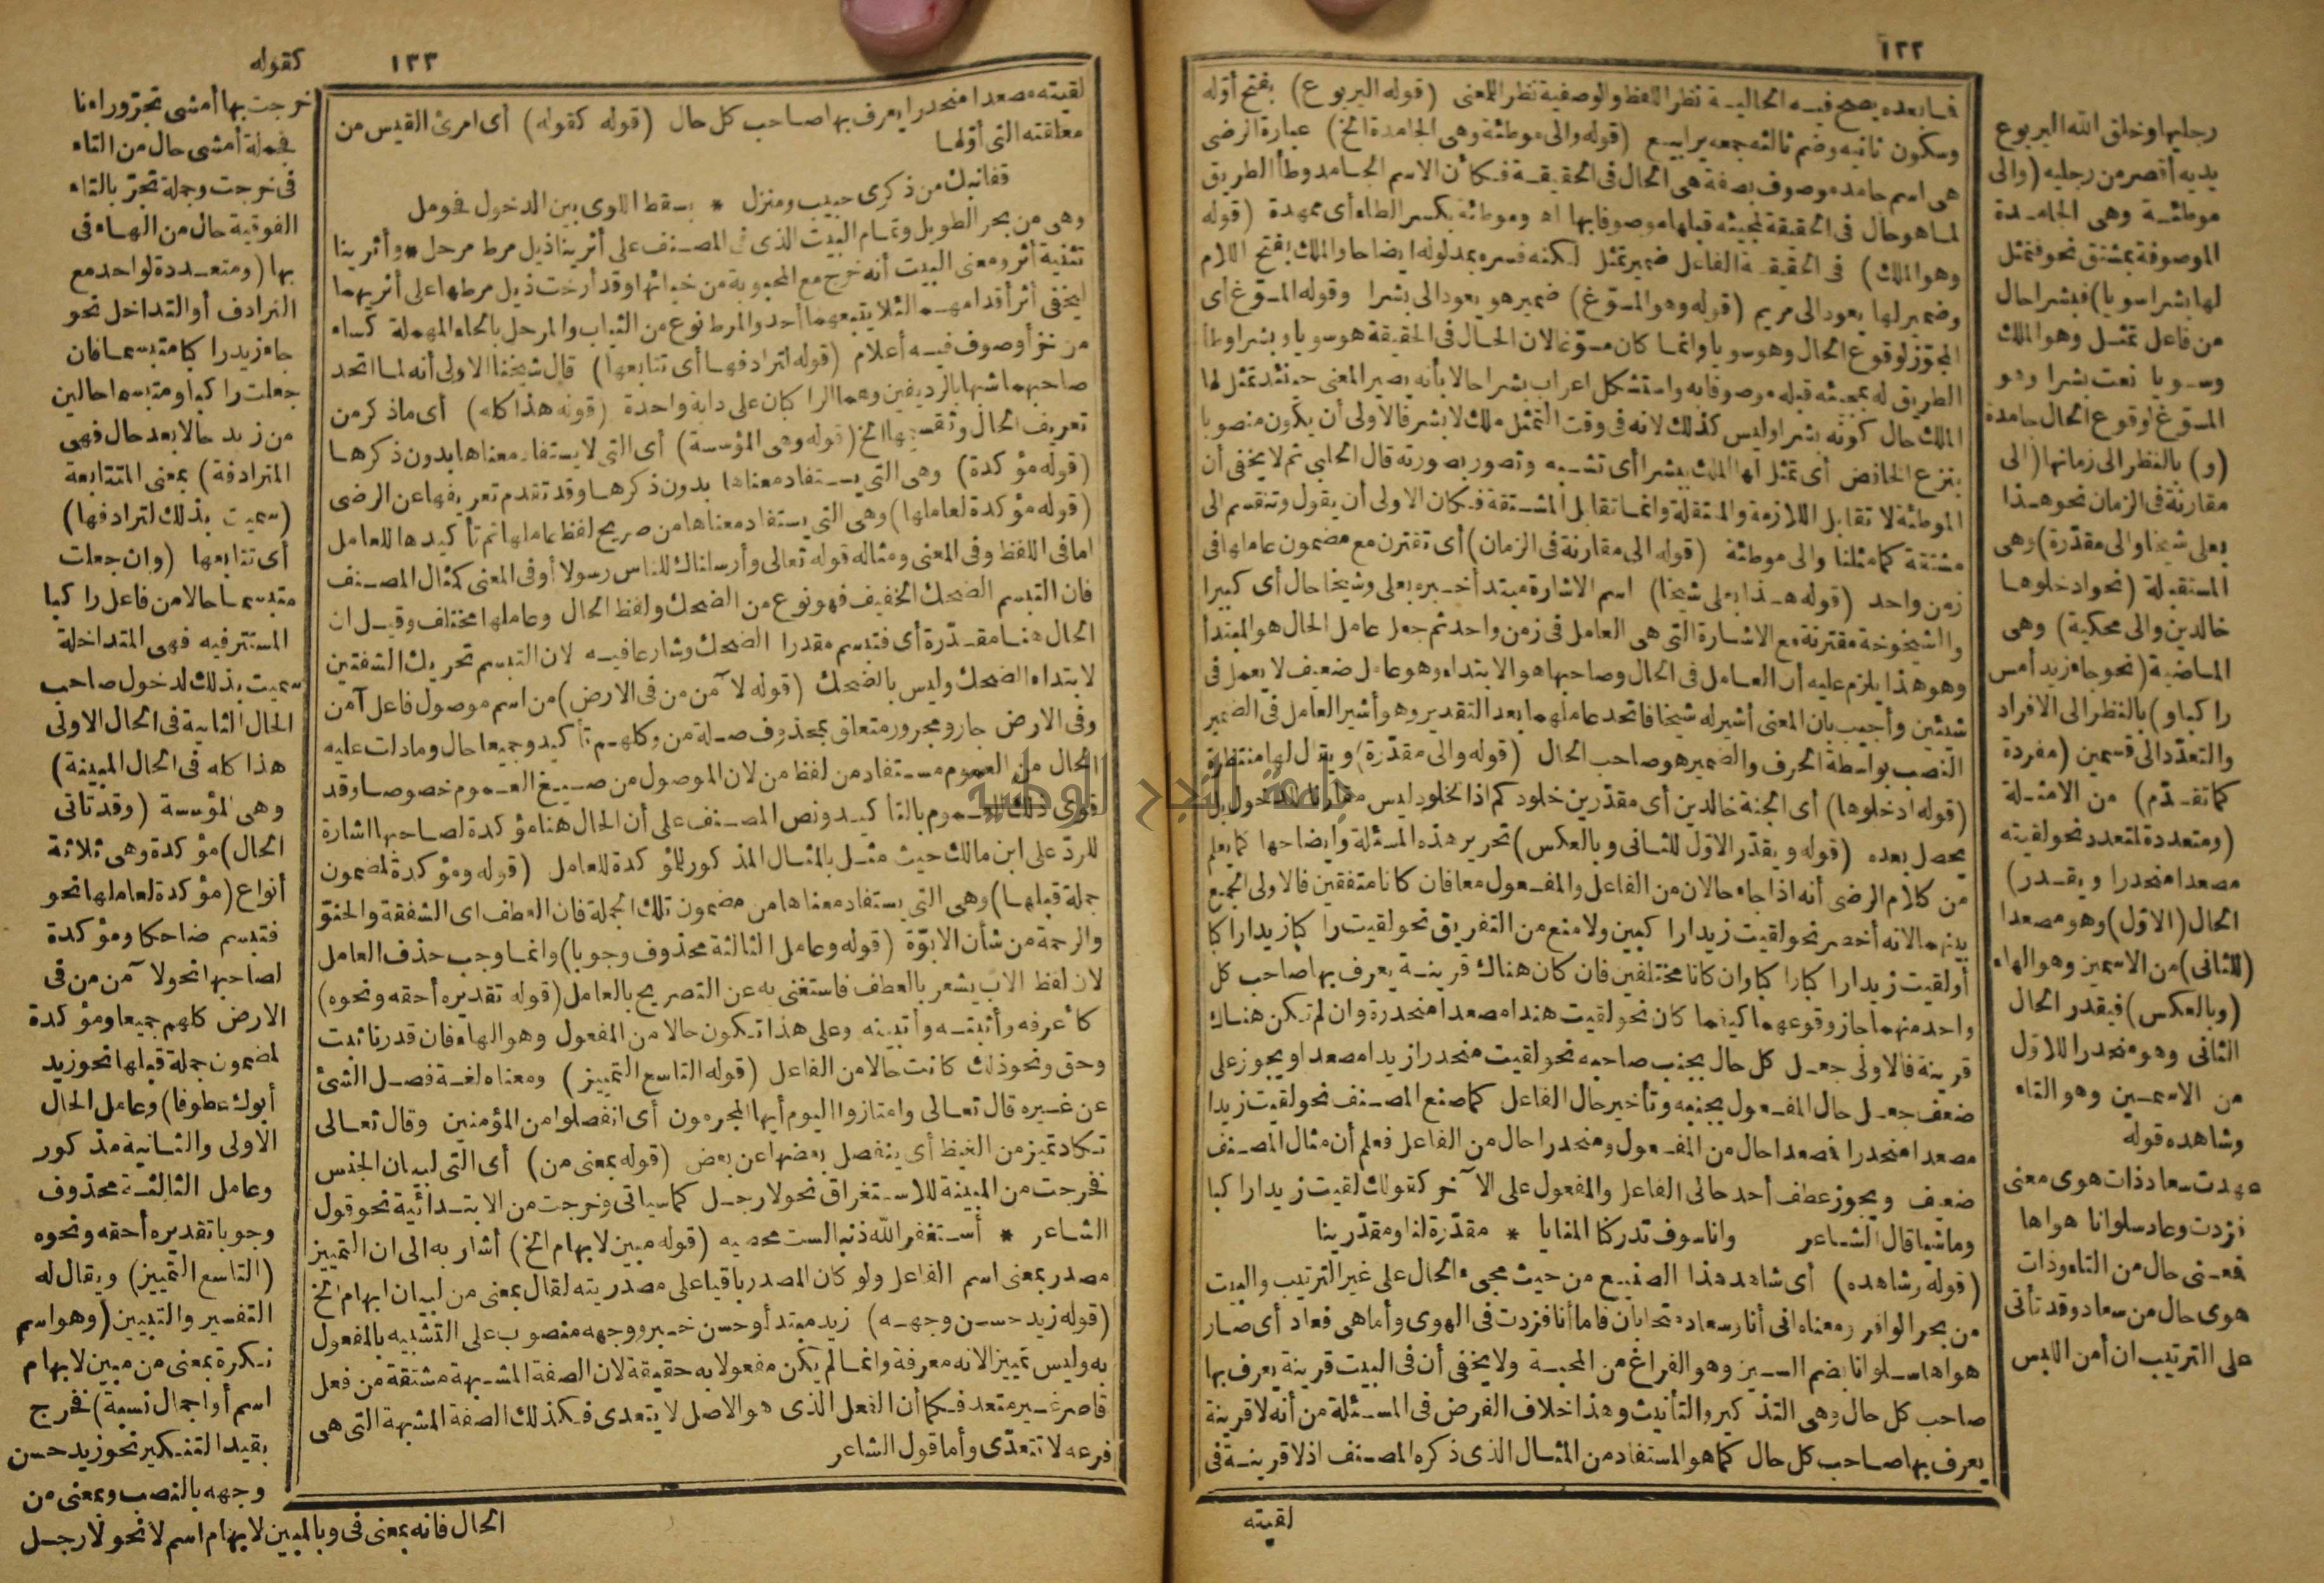 ١٢٢
فما بعده يصح فيه الحالية نظر اللفظ والوصفية نظر المعنى (قوله اليربوع) بفتح أوّله
وسكون ثانيه وضم ثالثه جمعه يرابيع (قوله والى موطئة وهى الجامدة الخ) عبارة الرضى
هى اسم جامد موصوف بصفة هى الحال فى الحقيقة فكأن الاسم الجامد وطأ الطريق
لما هو حال فى الحقيقة لمجيئه قبلها موصوفا بها اه وموطئة بكسر الطاء أى ممهدة (قوله
وهو الملك) فى الحقيقة الفاعل ضمير تمثل لكنه فسره بمدلوله ايضاحا والملك بفتح اللام
وضمير لها يعود الى مريم (قوله وهو المسوّغ) ضمير هو يعود الى بشرا وقوله المسوّغ أى
المجوّز لوقوع الحال وهو سويا وانما كان مسوّغا لان الحال فى الحقيقة هو سويا وبشرا وطأ
الطريق له بمجيئه قبله موصوفا به واستشكل اعراب بشرا حالا بأنه يصير المعنى حينئذ تمثل لها
الملك حال كونه بشرا وليس كذلك لانه فى وقت التمثل ملك لا بشر فالأولى أن يكون منصوبا
بنزع الخافض أى تمثل لها الملك ببشرا أى تشبه وتصور بصورته قال الحلبي ثم لا يخفى أن
الموطئة لا تقابل اللازمة والمنتقلة وانما تقابل المشتقة فكان الاولى أن يقول وتنقسم الى
مشتقة كما مثلنا والى موطئة (قوله الى مقارنة فى الزمان) أى تقترن مع مضمون عاملها فى
زمن واحد (قوله هذا بعلى شيخا) اسم الاشارة مبتدأ خبره بعلى وشيخا حال أى كبيرا
والشيخوخة مقترنة مع الاشارة التى هى العامل فى زمن واحد ثم جعل عامل الحال هو المبتدأ
وهو هذا يلزم عليه أن العامل فى الحال وصاحبها هو الابتداء وهو عامل ضعيف لا يعمل فى
شيئين وأجيب بان المعنى أشير له شيخا فاتحد عاملهما بعد التقدير وهو أشير العامل فى الضمير
النصب بواسطة الحرف والضمير هو صاحب الحال (قوله والى مقدّرة) ويقال لها منتظرة
(قوله ادخلوها) أى الجنة خالدين أى مقدّرين خلودكم اذ الخلود ليس مقارنا للدخول بل
يحصل بعده (قوله ويقدّر الاوّل للثانى وبالعكس) تحرير هذه المسئلة وايضاحها كما يعلم
من كلام الرضى أنه اذا جاء حالان من الفاعل والمفعول معا فان كانا متفقين فالاولى الجمع
بينهما لانه أخصر نحو لقيت زيدا راكبين ولا منع من التفريق نحو لقيت راكبا زيدا راكبا
أو لقيت زيدا راكبا راكبا وان كانا مختلفين فان كان هناك قرينة يعرف بها صاحب كل
واحد منهما جاز وقوعهما كيفما كان نحو لقيت هندا مصعدا منحدرة وان لم تكن هناك
قرينة فالاولى جعل كل حال بجنب صاحبه نحو لقيت منحدرا زيدا مصعدا ويجوز على
ضعف جعل حال المفعول بجنبه وتأخير حال الفاعل كما صنع المصنف نحو لقيت زيدا
مصعدا منحدرا فمصعدا حال من المفعول ومنحدرا حال من الفاعل فعلم أن مثال المصنف
ضعيف ويجوز عطف أحد حالى الفاعل والمفعول على الآخر كقولك لقيت زيدا راكبا
وماشيا قال الشاعر وانا سوف تدركنا المنايا * مقدّرة لنا ومقدّرينا
(قوله وشاهده) أى شاهد هذا الصنيع من حيث مجىء الحال على غير الترتيب والبيت
من بحر الوافر ومعناه انى أنا وسعاد متحابان فاما أنا فزدت فى الهوى وأما هى فعاد أى صار
هواها سلوانا بضم السين وهو الفراغ من المحبة ولا يخفى أن فى البيت قرينة يعرف بها
صاحب كل حال وهى التذكير والتأنيث وهذا خلاف الفرض فى المسئلة من أنه لا قرينة
يعرف بها صاحب كل حال كما هو المستفاد من المثال الذى ذكره المصنف اذ لا قرينة فى
لقيته
رجليها وخلق الله اليربوع
يديه أقصر من رجليه (والى
موطئة وهى الجامدة
الموصوفة بمشتق نحو فتمثل
لها بشرا سويا) فبشرا حال
من فاعل تمثل وهو الملك
وسويا نعت بشرا وهو
المسوّغ لوقوع الحال جامدة
(و) بالنظر الى زمانها (الى
مقارنة فى الزمان نحو هذا
بعلى شيخا والى مقدّرة) وهى
المستقبلة (نحو ادخلوها
خالدين والى محكية) وهى
الماضية (نحو جاء زيد أمس
راكبا و) بالنظر الى الافراد
والتعدّد الى قسمين (مفردة
كما تقدّم) من الامثلة
(ومتعددة لمتعدد نحو لقيته
مصعدا منحدرا ويقدر)
الحال (الاوّل) وهو مصعدا
(للثانى) من الاسمين وهو الهاء
(وبالعكس) فيقدر الحال
الثانى وهو منحدرا للاوّل
من الاسمين وهو التاء
وشاهده قوله
عهدت سعاد ذات هوى معنى
فزدت وعاد سلوانا هواها
فمعنى حال من التاء وذات
هوى حال من سعاد وقد تأتى
على الترتيب ان أمن اللبس
١٢٣
كقوله
لقيته مصعدا منحدرا يعرف بها صاحب كل حال (قوله كقوله) أى امرئ القيس من
معلقته التى أوّلها
قفا نبك من ذكرى حبيب ومنزل * بسقط اللوى بين الدخول فحومل
وهى من بحر الطويل وتمام البيت الذى فى المصنف على أثرينا ذيل مرط مرحل * وأثرينا
تثنية أثر ومعنى البيت أنه خرج مع المحبوبة من خبائها وقد أرخت ذيل مرطها على أثريهما
ليخفى أثر أقدامهما لئلا يتبعهما أحد والمرط نوع من الثياب والمرحل بالحاء المهملة كساء
من خز أو صوف فيه أعلام (قوله لترادفها أى تتابعها) قال شيخنا الاولى أنه لما اتحد
صاحبهما شبها بالرديفين وهما الراكبان على دابة واحدة (قوله هذا كله) أى ما ذكر من
تعريف الحال وتقسيمها الخ (قوله وهى المؤسسة) أى التى لا يستفاد معناها بدون ذكرها
(قوله مؤكدة) وهى التى يستفاد معناها بدون ذكرها وقد تقدم تعريفها عن الرضى
(قوله مؤكدة لعاملها) وهى التى يستفاد معناها من صريح لفظ عاملها ثم تأكيدها للعامل
اما فى اللفظ وفى المعنى ومثاله قوله تعالى وأرسلناك للناس رسولا أو فى المعنى كمثال المصنف
فان التبسم الضحك الخفيف فهو نوع من الضحك ولفظ الحال وعاملها مختلف وقيل ان
الحال هنا مقدّرة أى فتبسم مقدرا الضحك وشارعا فيه لان التبسم تحريك الشفتين
لابتداء الضحك وليس بالضحك (قوله لآمن من فى الارض) من اسم موصول فاعل آمن
وفى الارض جار ومجرور متعلق بمحذوف صلة من وكلهم تأكيد وجميعا حال وما دلت عليه
الحال من العموم مستفاد من لفظ من لان الموصول من صيغ العموم خصوصا وقد
قوى ذلك العموم بالتأكيد ونص المصنف على أن الحال هنا مؤكدة لصاحبها اشارة
للردّ على ابن مالك حيث مثل بالمثال المذكور للمؤكدة للعامل (قوله ومؤكدة لمضمون
جملة قبلها) وهى التى يستفاد معناها من مضمون تلك الجملة فان العطف اى الشفقة والحنوّ
والرحمة من شأن الابوّة (قوله وعامل الثالثة محذوف وجوبا) وانما وجب حذف العامل
لان لفظ الاب يشعر بالعطف فاستغنى به عن التصريح بالعامل (قوله تقديره أحقه ونحوه)
كأعرفه وأثبته وأتبينه وعلى هذا تكون حالا من المفعول وهو الهاء فان قدر ثائبت
وحق ونحو ذلك كانت حالا من الفاعل (قوله التاسع التمييز) ومعناه لغة فصل الشئ
عن غيره قال تعالى وامتازوا اليوم أيها المجرمون أى انفصلوا من المؤمنين وقال تعالى
تكاد تميز من الغيظ أى ينفصل بعضها عن بعض (قوله بمعنى من) أى التى لبيان الجنس
فخرجت من المبينة للاستغراق نحو لا رجل كما سيأتى وخرجت من الابتدائية نحو قول
الشاعر * أستغفر الله ذنبا لست محصيه (قوله مبين لابهام الخ) أشار به الى ان التمييز
مصدر بمعنى اسم الفاعل ولو كان المصدر باقيا على مصدريته لقال بمعنى من لبيان ابهام الخ
(قوله زيد حسن وجهه) زيد مبتدأ وحسن خبر ووجهه منصوب على التشبيه بالمفعول
به وليس تمييزا لانه معرفة وانما لم يكن مفعولا به حقيقة لان الصفة المشبهة مشتقة من فعل
قاصر غير متعد فكما أن الفعل الذى هو الاصل لا يتعدى فكذلك الصفة المشبهة التى هى
فرعه لا تتعدّى وأما قول الشاعر
خرجت بها أمشى تجرّ وراءنا
فجملة أمشى حال من التاء
فى خرجت وجملة تجرّ بالتاء
الفوقية حال من الهاء فى
بها (ومتعددة لواحد مع
الترادف أو التداخل نحو
جاء زيد راكبا متبسما فان
جعلت راكبا ومتبسما حالين
من زيد حالا بعد حال فهى
المترادفة) بمعنى المتتابعة
(سميت بذلك لترادفها)
أى تتابعها (وان جعلت
متبسما حالا من فاعل راكبا
المستتر فيه فهى المتداخلة
سميت بذلك لدخول صاحب
الحال الثانية فى الحال الاولى
هذا كله فى الحال المبينة)
وهى المؤسسة (وقد تاتى
الحال) مؤكدة وهى ثلاثة
أنواع (مؤكدة لعاملها نحو
فتبسم ضاحكا ومؤكدة
لصاحبها نحو لآمن من فى
الارض كلهم جميعا ومؤكدة
لمضمون جملة قبلها نحو زيد
أبوك عطوفا) وعامل الحال
الاولى والثانية مذكور
وعامل الثالثة محذوف
وجوبا تقديره أحقه ونحوه
(التاسع التمييز) ويقال له
التفسير والتبيين (وهو اسم
نكرة بمعنى من مبين لابهام
اسم أو اجمال نسبة) فخرج
بقيد التنكير نحو زيد حسن
وجهه بالنصب وبمعنى من
الحال فانه بمعنى فى وبالمبين لابهام اسم لا نحو لا رجل
جامعة النجاح الوطنية